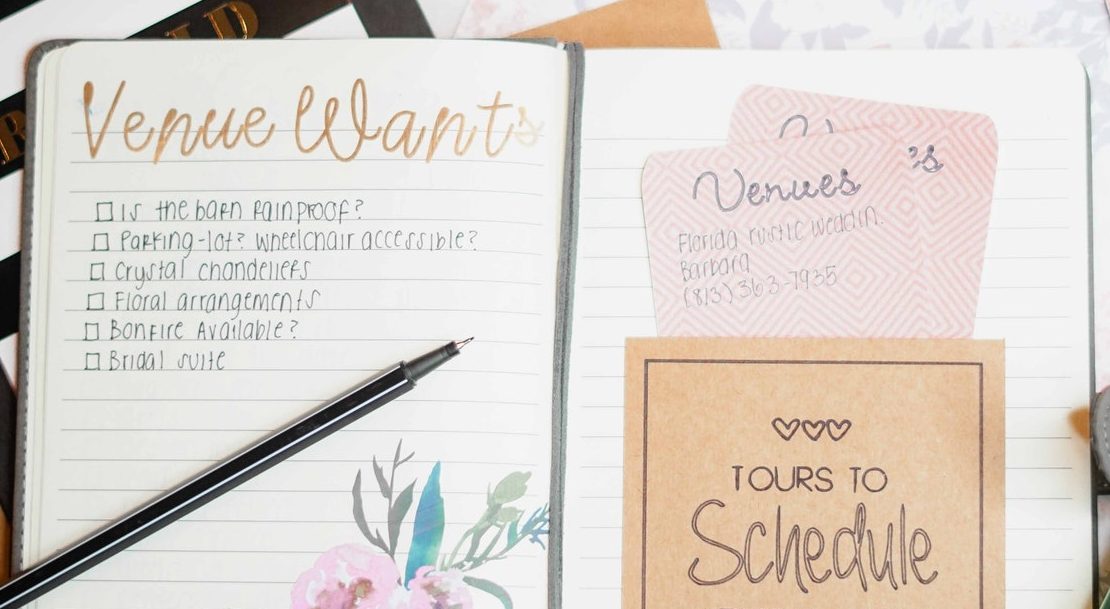 Venue Wants
Is the barn rainproof?
Parking-lot? wheelchair accessible?
Crystal chandeliers
Floral arrangements
Bonfire Available?
Bridal suite
's
Venues
Florida rustic weddin.
Barbara
(813) 363-7935
TOURS TO
Schedule